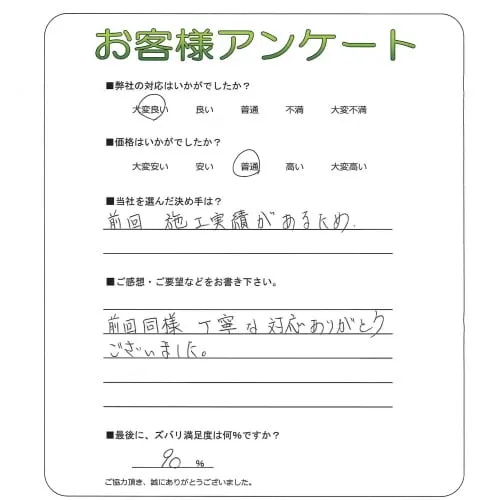 お客様アンケート
■弊社の対応はいかがでしたか？
大変良い 良い 普通 不満 大変不満
■価格はいかがでしたか？
大変安い 安い 普通 高い 大変高い
■当社を選んだ決め手は？
前回 施工実績があるため.
■ご感想・ご要望などをお書き下さい。
前回同様 丁寧な対応ありがとう
ございました。
■最後に、ズバリ満足度は何％ですか？
90 ％
ご協力頂き、誠にありがとうございました。